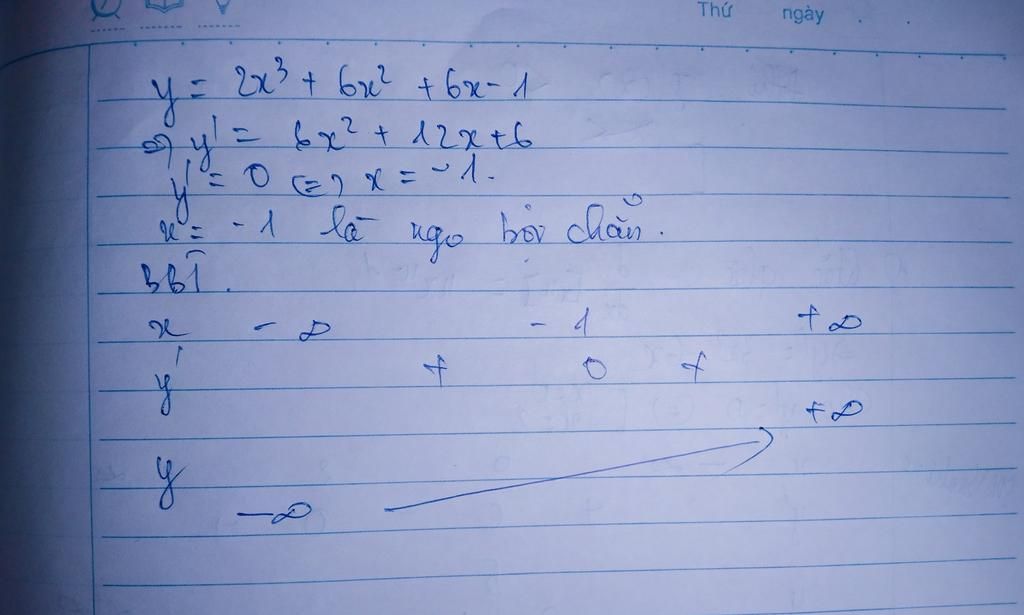 Thứ ngày . .
y = 2x³ + 6x² + 6x - 1
=> y' = 6x² + 12x + 6
y' = 0 <=> x = -1.
x = -1 là ngo bội chẵn.
BBT.
x -∞ -1 +∞
y' + 0 +
+∞
y
-∞